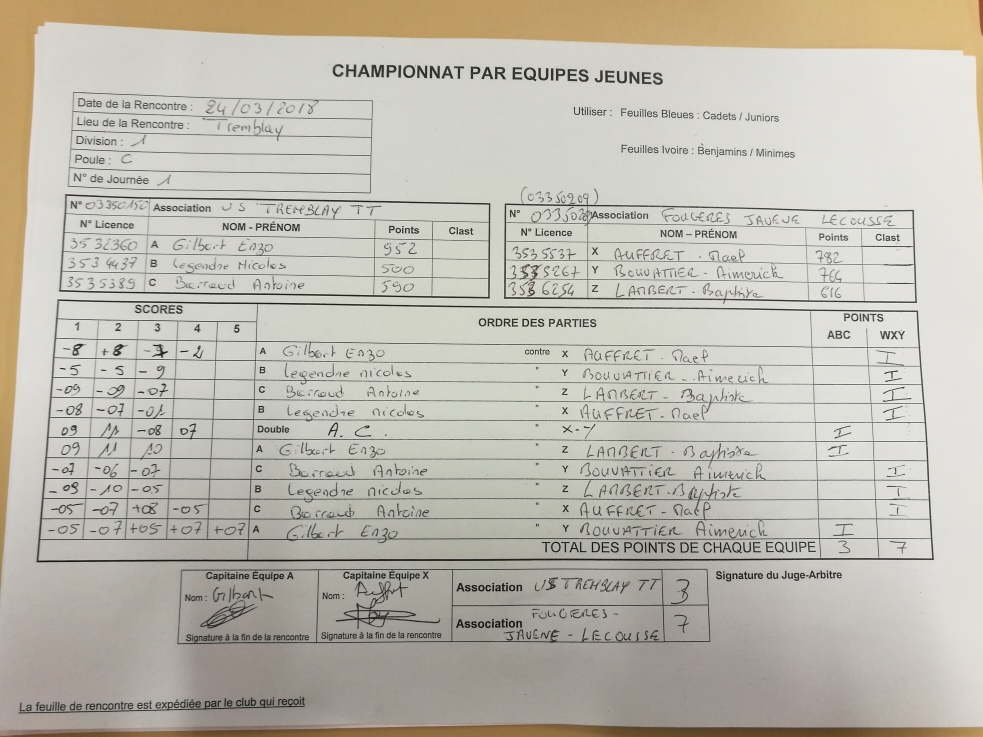 CHAMPIONNAT PAR EQUIPES JEUNES
Date de la Rencontre : 24/03/2018
Lieu de la Rencontre : Tremblay
Division : 1
Poule : C
N° de Journée 1
Utiliser : Feuilles Bleues : Cadets / Juniors
Feuilles Ivoire : Benjamins / Minimes
N° 03350150 Association US TREMBLAY TT
N° Licence NOM - PRÉNOM Points Clast
3532360 A Gilbert Enzo 952
3534437 B Legendre Nicolas 500
3535389 C Barraud Antoine 590
(03350209)
N° Association FOUGERES JAVENE LECOUSSE
N° Licence NOM – PRÉNOM Points Clast
3535537 X AUFFRET - Mael 782
3535267 Y BOUVATTIER - Aimerick 764
3536254 Z LAMBERT - Baptiste 616
SCORES ORDRE DES PARTIES POINTS
1 2 3 4 5 ABC WXY
-8 +8 -7 -2 A Gilbert Enzo contre X AUFFRET - Mael I
-5 -5 -9 B Legendre nicolas " Y BOUVATTIER - Aimerick I
-09 -09 -07 C Barraud Antoine " Z LAMBERT - Baptiste I
-08 -07 -01 B Legendre nicolas " X AUFFRET - Mael I
09 11 -08 07 Double A. C. " X-Y I
09 11 10 A Gilbert Enzo " Z LAMBERT - Baptiste I
-07 -06 -07 C Barraud Antoine " Y BOUVATTIER Aimerick I
-09 -10 -05 B Legendre nicolas " Z LAMBERT - Baptiste I
-05 -07 +08 -05 C Barraud Antoine " X AUFFRET - Mael I
-05 -07 +05 +07 +07 A Gilbert Enzo " Y BOUVATTIER Aimerick I
TOTAL DES POINTS DE CHAQUE EQUIPE 3 7
Capitaine Équipe A
Nom : Gilbert
Signature à la fin de la rencontre
Capitaine Équipe X
Nom : Auffret
Signature à la fin de la rencontre
Association US TREMBLAY TT 3
Association FOUGERES - JAVENE - LECOUSSE 7
Signature du Juge-Arbitre
La feuille de rencontre est expédiée par le club qui reçoit